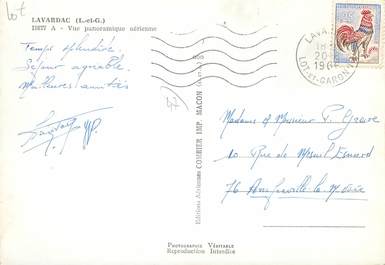 Lot
LAVARDAC (L.-et-G.)
A - Vue panoramique aérienne
Temps splendide.
Séjour agréable.
Meilleures amitiés
LAVA
18
20
196
LOT-ET-GARONNE
Editions Aériennes COMBIER IMP. MACON
Madame et Monsieur P.
10 Rue de Mesnil Esnard
76 Amfreville-la-Mivoie
PHOTOGRAPHIE VÉRITABLE
Reproduction Interdite